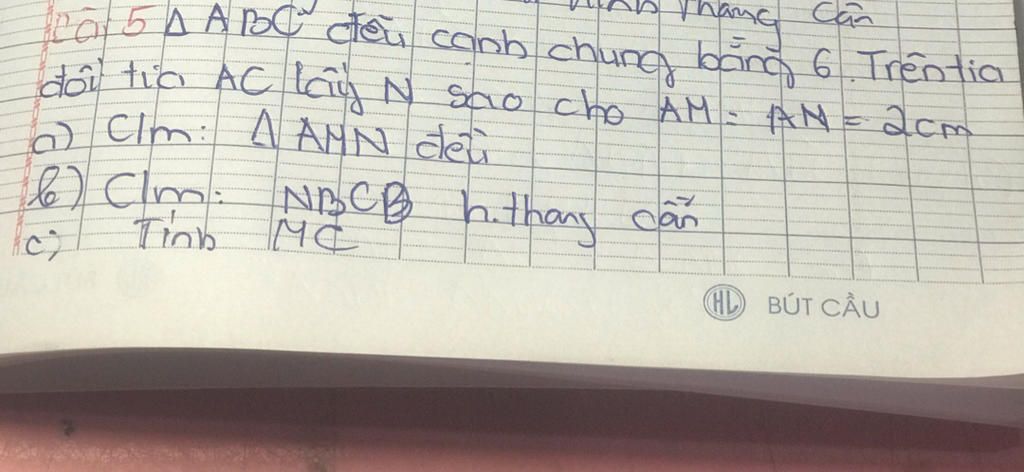 hình thang cân
Bài 5 Δ ABC đều cạnh chung bằng 6. Trên tia
đối tia AC lấy N sao cho AM = AN = 2cm
a) C/m: Δ AMN đều
b) C/m: NBCB h.thang cân
c) Tính MC
HL BÚT CẦU